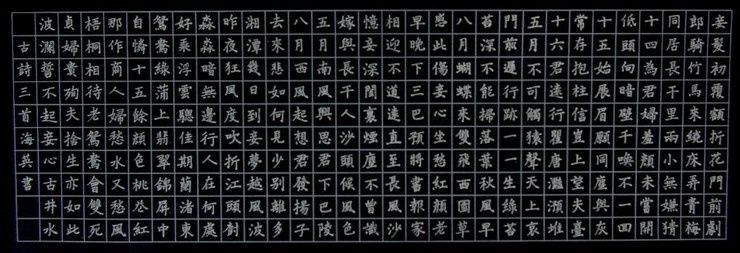 妾髮初覆額折花門前劇
郎騎竹馬來繞床弄青梅
同居長干里兩小無嫌猜
十四為君婦羞顏未嘗開
低頭向暗壁千喚不一回
十五始展眉願同塵與灰
常存抱柱信豈上望夫臺
十六君遠行瞿塘灩澦堆
五月不可觸猿聲天上哀
門前遲行跡一一生綠苔
苔深不能掃落葉秋風早
八月蝴蝶來雙飛西園草
感此傷妾心坐愁紅顏老
早晚下三巴預將書報家
相迎不道遠直至長風沙
憶妾深閨裏煙塵不曾識
嫁與長干人沙頭候風色
五月南風興思君下巴陵
八月西風起想君發揚子
去來悲如何見少別離多
湘潭幾日到妾夢越風波
昨夜狂風度吹折江頭樹
淼淼暗無邊行人在何處
好乘浮雲驄佳期蘭渚東
鴛鴦綠蒲上翡翠錦屏中
自憐十五餘顏色桃花紅
那作商人婦愁水又愁風
梧桐相待老鴛鴦會雙死
貞婦貴殉夫捨生亦如此
波瀾誓不起妾心古井水
古詩三首海英書